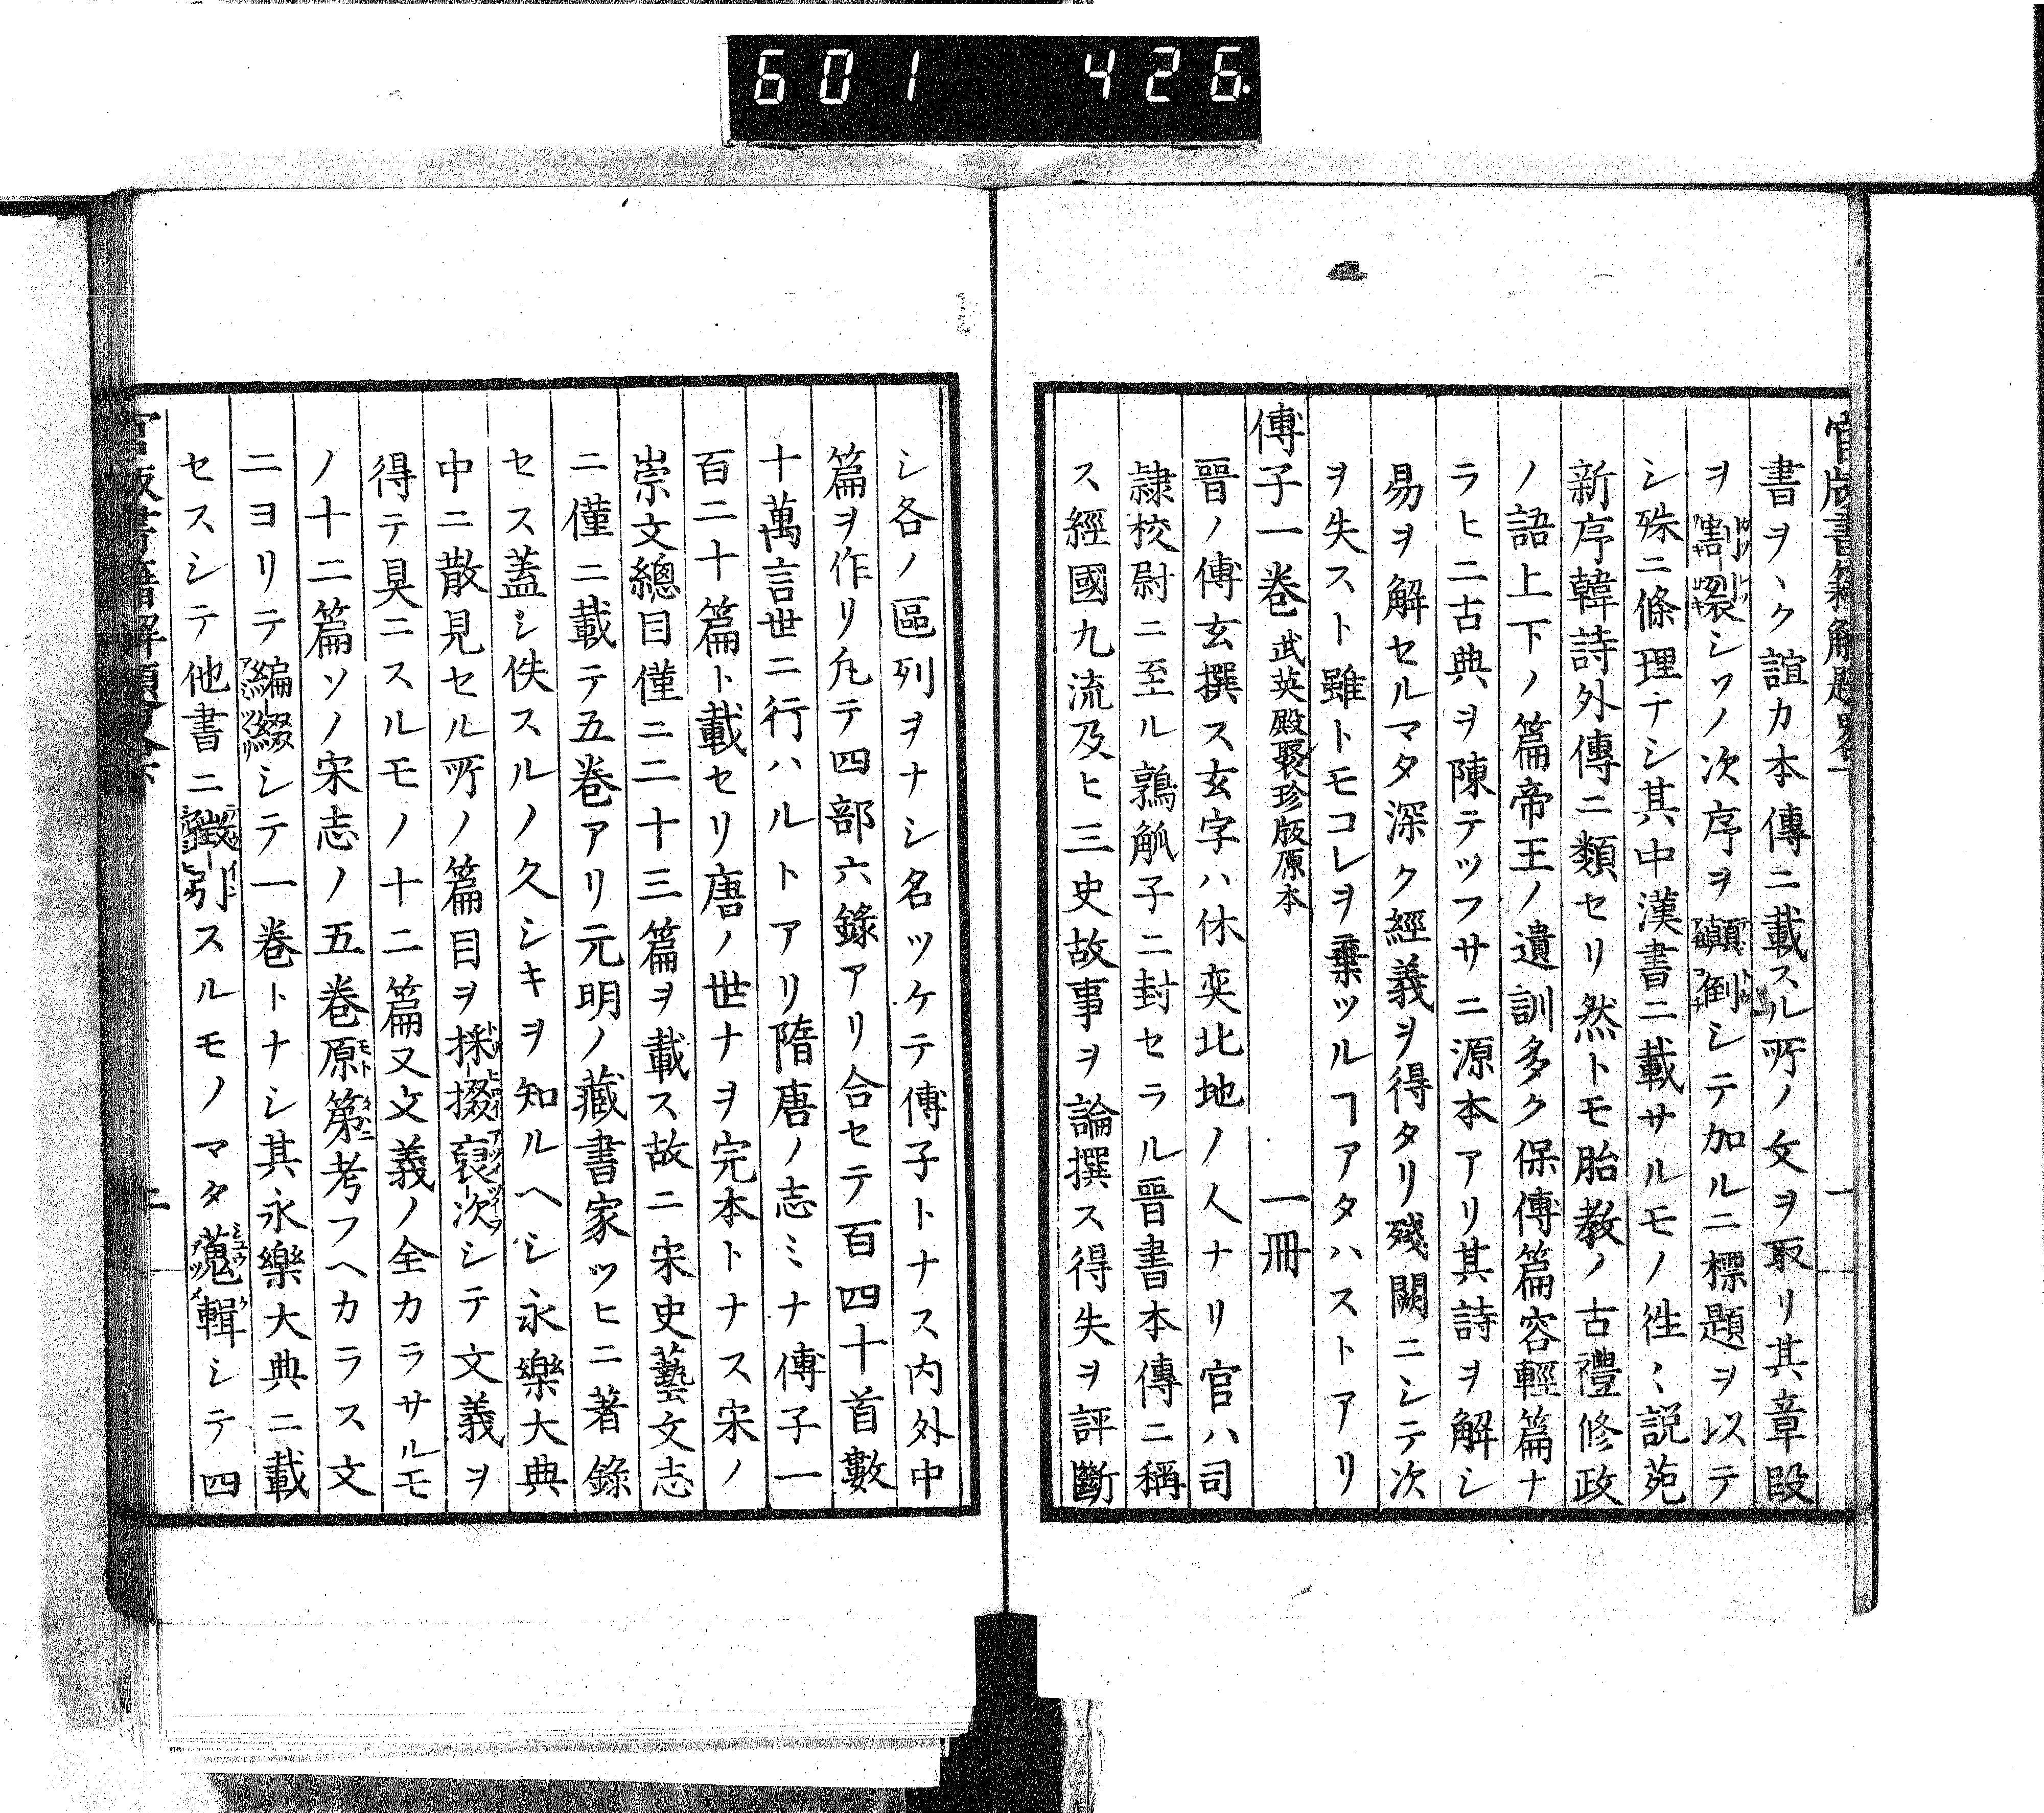 601 426
官版書籍解題畧
書ヲヽク誼カ本傳ニ載スル所ノ文ヲ取リ其章段
ヲ割裂シソノ次序ヲ顚倒シテ加ルニ標題ヲ以テ
シ殊ニ條理ナシ其中漢書ニ載サルモノ徃〻説苑
新序韓詩外傳ニ類セリ然トモ胎教ノ古禮修政
ノ語上下ノ篇帝王ノ遺訓多ク保傳篇容輕篇ナ
ラヒニ古典ヲ陳テツフサニ源本アリ其詩ヲ解シ
易ヲ解セルマタ深ク經義ヲ得タリ殘闕ニシテ次
ヲ失スト雖トモコレヲ棄ツルヿアタハストアリ
傅子一巻 武英殿聚珍版原本 一冊
晋ノ傅玄撰ス玄字ハ休奕北地ノ人ナリ官ハ司
隷校尉ニ至ル鶉觚子ニ封セラル晋書本傳ニ稱
ス經國九流及ヒ三史故事ヲ論撰ス得失ヲ評斷
シ各ノ區列ヲナシ名ツケテ傅子トナス内外中
篇ヲ作リ凡テ四部六錄アリ合セテ百四十首數
十萬言世ニ行ハルトアリ隋唐ノ志ミナ傅子一
百二十篇ト載セリ唐ノ世ナヲ完本トナス宋ノ
崇文總目僅ニ二十三篇ヲ載ス故ニ宋史藝文志
ニ僅ニ載テ五巻アリ元明ノ藏書家ツヒニ著錄
セス蓋シ佚スルノ久シキヲ知ルヘシ永樂大典
中ニ散見セル所ノ篇目ヲ採掇裒次シテ文義ヲ
得テ具ニスルモノ十二篇又文義ノ全カラサルモ
ノ十二篇ソノ宋志ノ五巻原第考フヘカラス文
ニヨリテ編綴シテ一巻トナシ其永樂大典ニ載
セスシテ他書ニ徴引スルモノマタ蒐輯シテ四
官版書籍解題畧
二